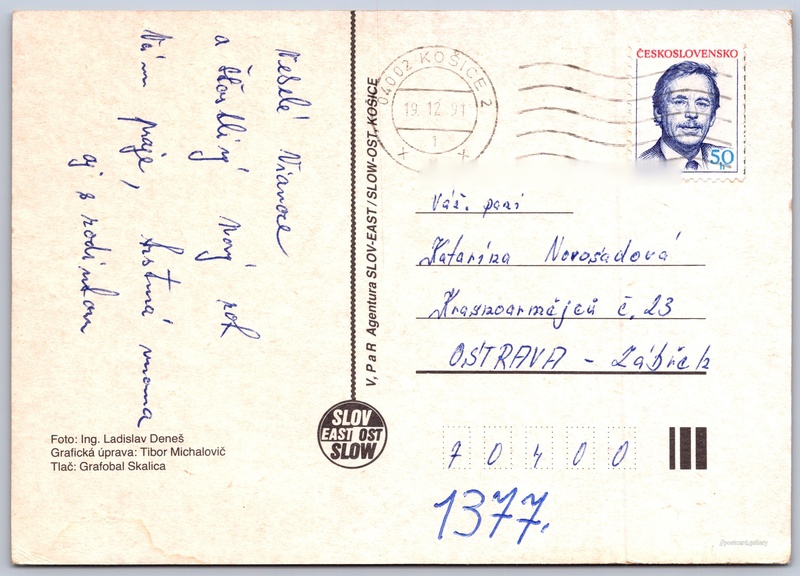 Veselé Vianoce
a šťastlivý nový rok
Vám praje, krstná mama
aj s rodinkou
Foto: Ing. Ladislav Deneš
Grafická úprava: Tibor Michalovič
Tlač: Grafobal Skalica
V, P a R Agentura SLOV-EAST / SLOW-OST, KOŠICE
SLOV
EAST OST
SLOW
04002 KOŠICE 2
19.12.91
1
ČESKOSLOVENSKO
50
h
Váž. paní
Katarína Novosadová
Krasnoarmějců č. 23
OSTRAVA - Zábřeh
7 0 4 0 0
1377.